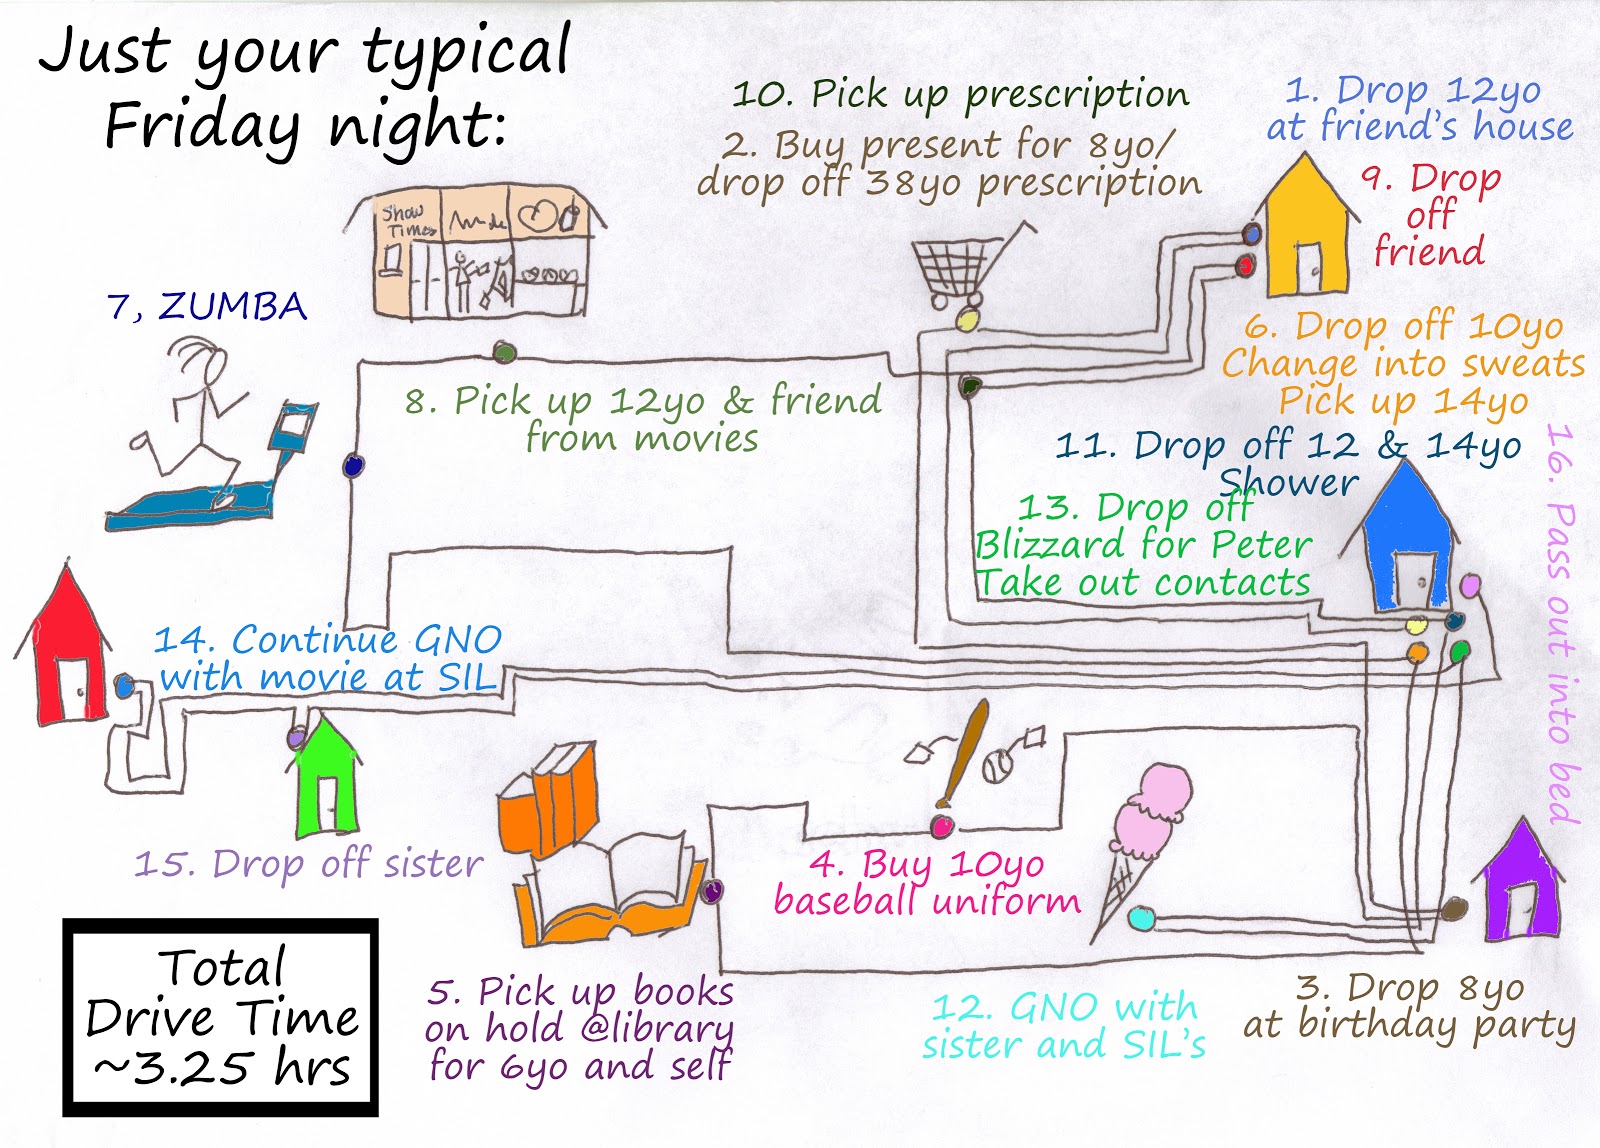 Just your typical
Friday night:
10. Pick up prescription
2. Buy present for 8yo/
drop off 38yo prescription
1. Drop 12yo
at friend's house
9. Drop
off
friend
Show
Times
7, ZUMBA
8. Pick up 12yo & friend
from movies
6. Drop off 10yo
Change into sweats
Pick up 14yo
11. Drop off 12 & 14yo
Shower
13. Drop off
Blizzard for Peter
Take out contacts
16. Pass out into bed
14. Continue GNO
with movie at SIL
15. Drop off sister
4. Buy 10yo
baseball uniform
5. Pick up books
on hold @library
for 6yo and self
12. GNO with
sister and SIL's
3. Drop 8yo
at birthday party
Total
Drive Time
~3.25 hrs